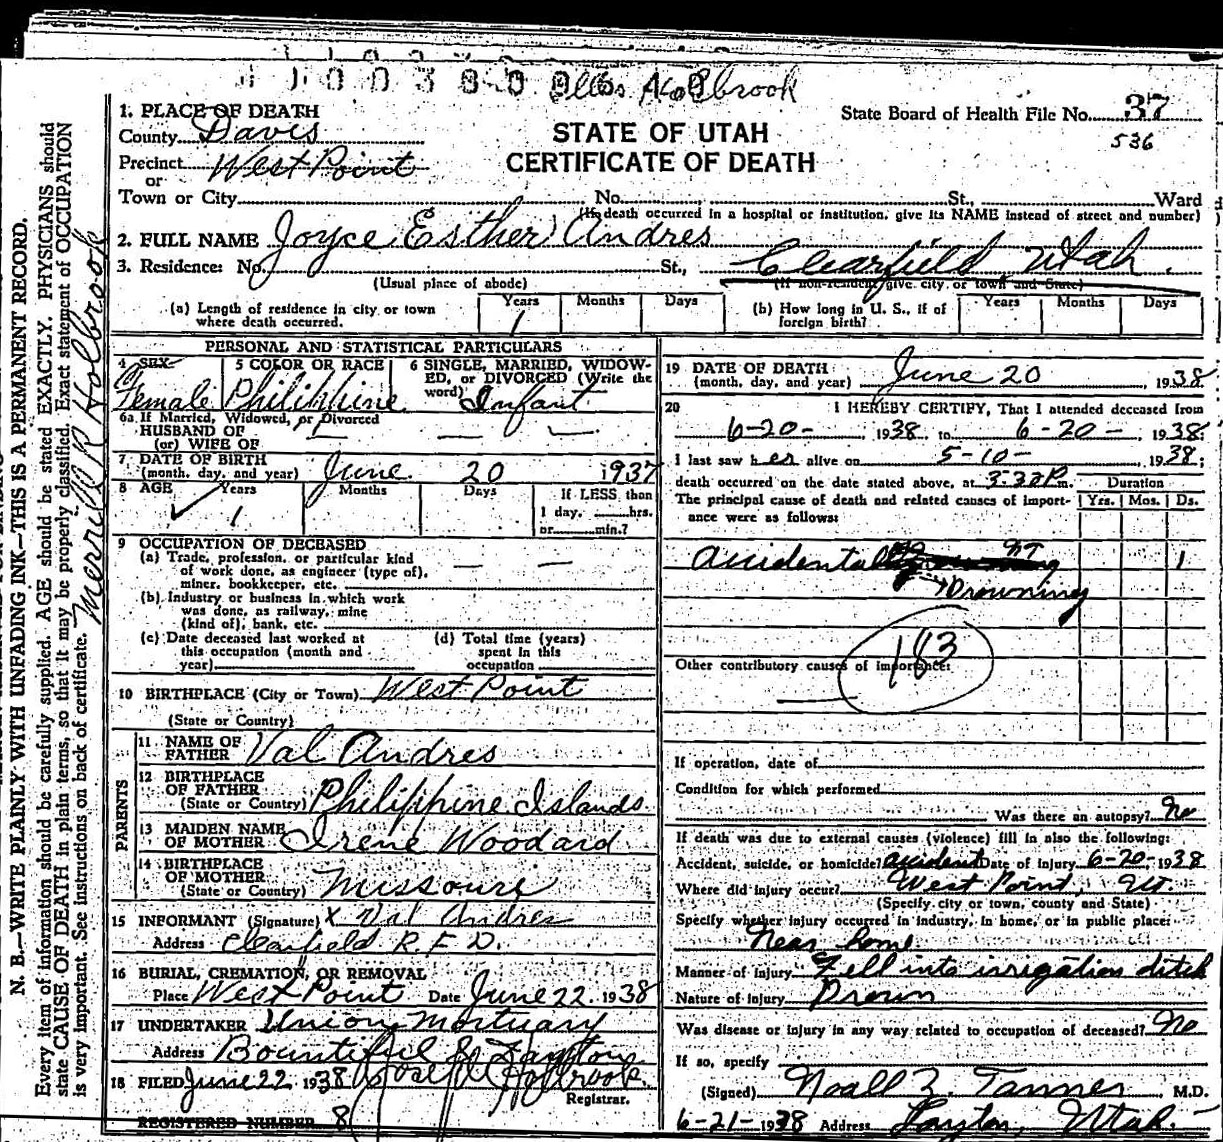 Merrill R Holbrook
1. PLACE OF DEATH
County Davis
Precinct West Point
or
Town or City No. St., Ward
(If death occurred in a hospital or institution, give its NAME instead of street and number)
Holbrook
STATE OF UTAH
CERTIFICATE OF DEATH
State Board of Health File No. 37
536
2. FULL NAME Joyce Esther Andres
3. Residence: No. St., Clearfield Utah.
(Usual place of abode) (If non-resident give city or town and State)
(a) Length of residence in city or town where death occurred. Years 1 Months Days
(b) How long in U. S., if of foreign birth? Years Months Days
PERSONAL AND STATISTICAL PARTICULARS
4 SEX Female
5 COLOR OR RACE Philippine
6 SINGLE, MARRIED, WIDOWED, or DIVORCED (Write the word) Infant
6a If Married, Widowed, or Divorced
HUSBAND OF
(or) WIFE OF
7 DATE OF BIRTH
(month, day, and year) June 20 1937
8 AGE Years 1 Months Days If LESS than
1 day, hrs.
or min.?
9 OCCUPATION OF DECEASED
(a) Trade, profession, or particular kind
of work done, as engineer (type of),
miner, bookkeeper, etc.
(b) Industry or business in which work
was done, as railway, mine
(kind of), bank, etc.
(c) Date deceased last worked at
this occupation (month and
year)
(d) Total time (years)
spent in this
occupation
10 BIRTHPLACE (City or Town) West Point
(State or Country)
PARENTS
11 NAME OF
FATHER Val Andres
12 BIRTHPLACE
OF FATHER
(State or Country) Philippine Islands
13 MAIDEN NAME
OF MOTHER Irene Woodard
14 BIRTHPLACE
OF MOTHER
(State or Country) Missouri
15 INFORMANT (Signature) x Val Andres
Address Clearfield R.F.D.
16 BURIAL, CREMATION, OR REMOVAL
Place West Point Date June 22, 1938
17 UNDERTAKER Union Mortuary
Address Bountiful & Layton
18 FILED June 22 1938 Joseph Holbrook
Registrar.
REGISTERED NUMBER 8
19 DATE OF DEATH
(month, day, and year) June 20, 1938
20 I HEREBY CERTIFY, That I attended deceased from
6-20-, 1938, to 6-20-, 1938;
I last saw her alive on 5-10-, 1938;
death occurred on the date stated above, at m. Duration
The principal cause of death and related causes of importance were as follows: Yrs. Mos. Ds.
Accidental 1
Drowning
183
Other contributory causes of importance:
If operation, date of
Condition for which performed
Was there an autopsy? No
If death was due to external causes (violence) fill in also the following:
Accident, suicide, or homicide? accident Date of injury 6-20-1938
Where did injury occur? West Point, Ut.
(Specify city or town, county and State)
Specify whether injury occurred in industry, in home, or in public place:
Near home
Manner of injury Fell into irrigation ditch
Nature of injury Drown
Was disease or injury in any way related to occupation of deceased? No
If so, specify
(Signed) Noall Z. Tanner M.D.
6-21-1938 Address Layton, Utah
N. B.—WRITE PLAINLY WITH UNFADING INK—THIS IS A PERMANENT RECORD.
Every item of information should be carefully supplied. AGE should be stated EXACTLY. PHYSICIANS should
state CAUSE OF DEATH in plain terms, so that it may be properly classified. Exact statement of OCCUPATION
is very important. See instructions on back of certificate.